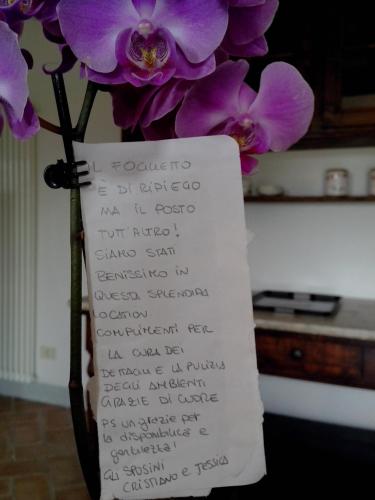 IL FOGLIETTO
È DI RIPIEGO
MA IL POSTO
TUTT'ALTRO!
SIAMO STATI
BENISSIMO IN
QUESTA SPLENDIDA
LOCATION
COMPLIMENTI PER
LA CURA DEI
DETTAGLI E LA PULIZIA
DEGLI AMBIENTI
GRAZIE DI CUORE
PS un grazie per
la disponibilità e
gentilezza!
GLI SPOSINI
CRISTIANO e JESSICA